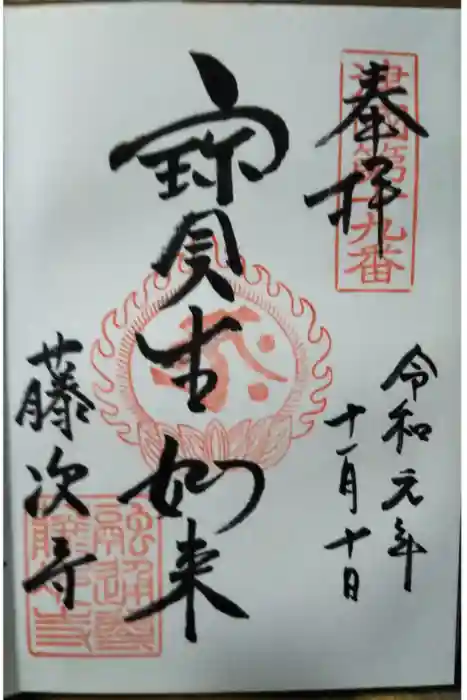 奉拝
津國第十九番
令和元年
十一月十日
寶生如来
藤次寺